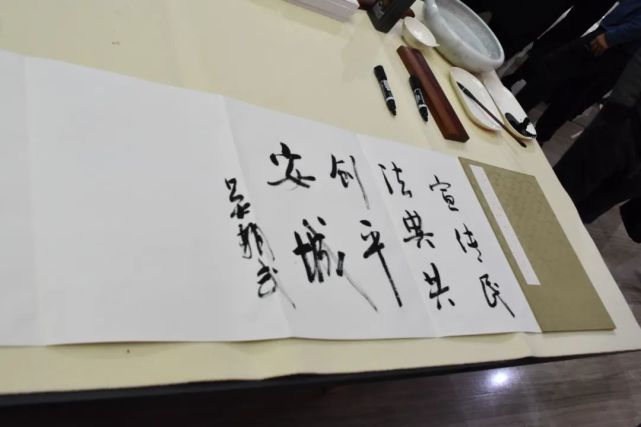 宣传民
法典共
创平
安城